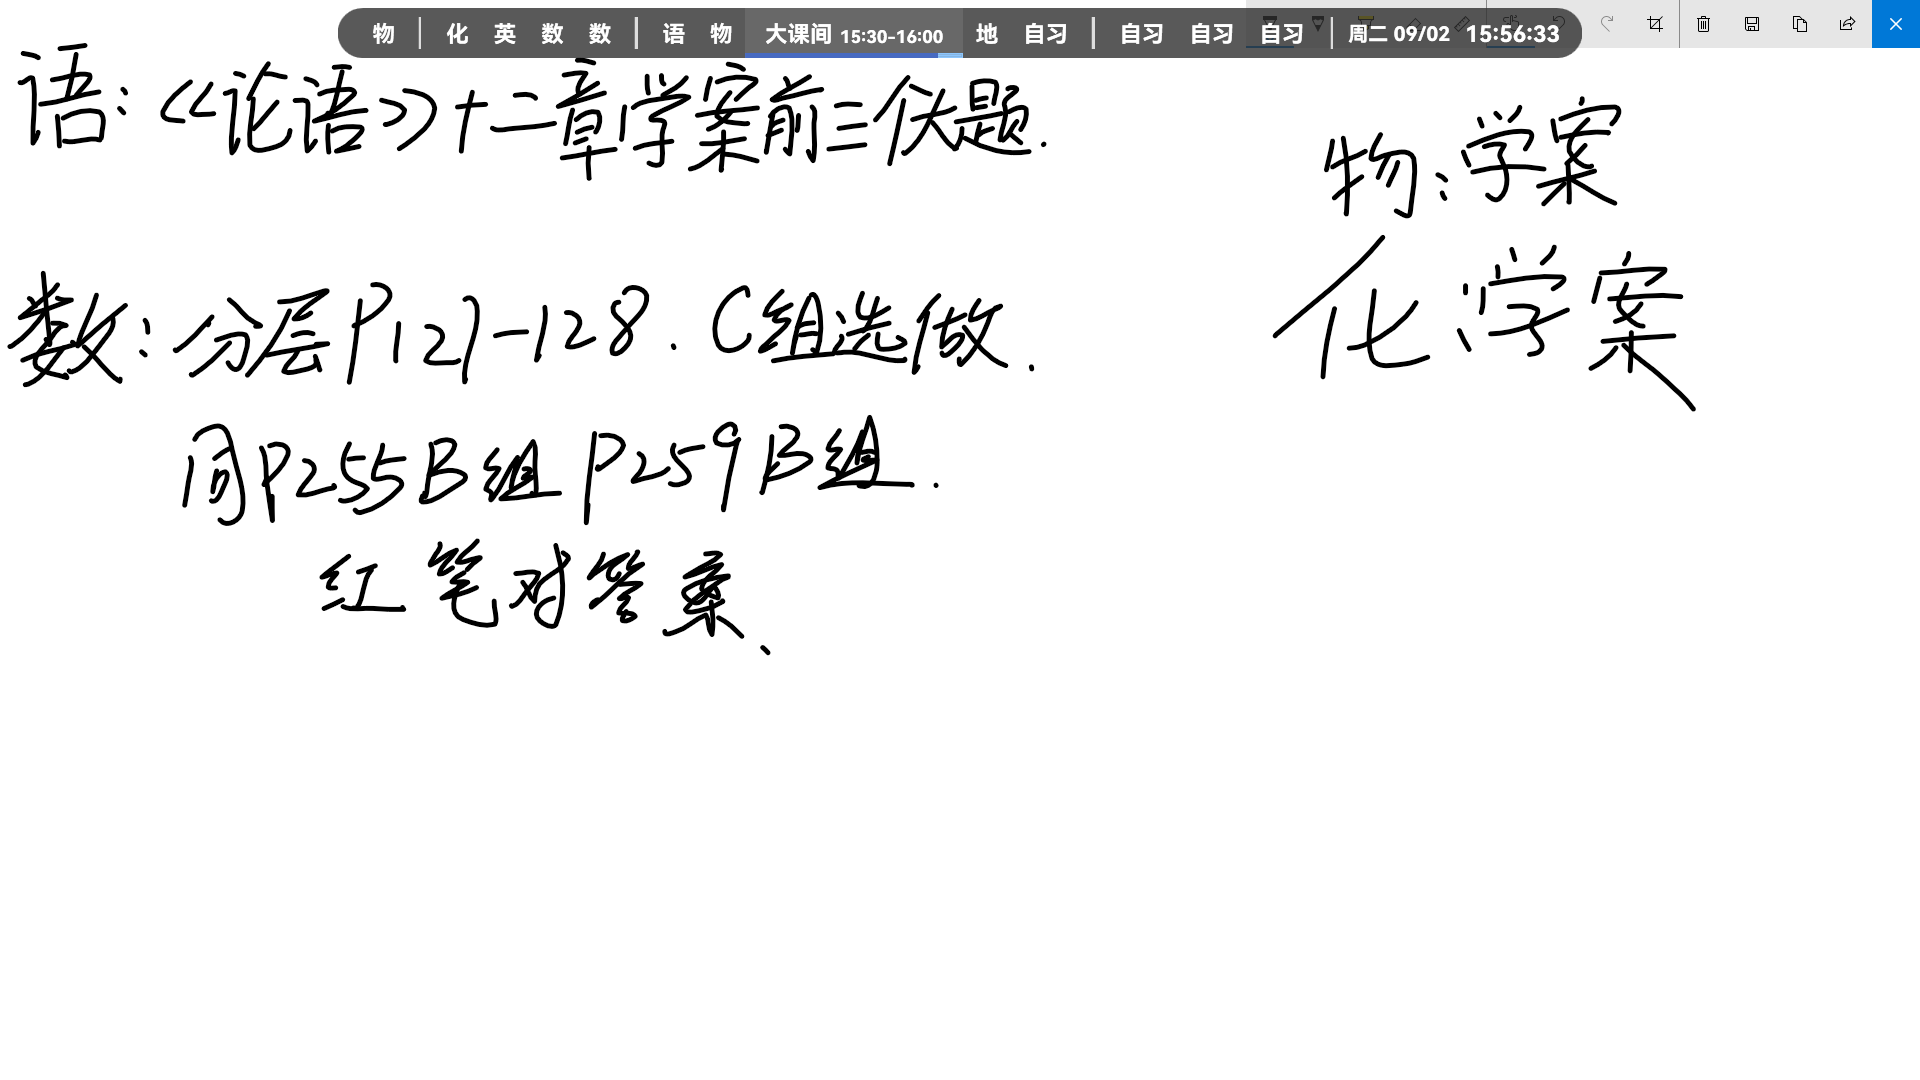 物 | 化 英 数 数 | 语 物 大课间 15:30-16:00 地 自习 | 自习 自习 自习 | 周二 09/02 15:56:33
语:《论语》十二章学案前三伏题.
物:学案
化:学案
数:分层P127-128. C组选做.
同P255B组 P259B组.
红笔对答案、